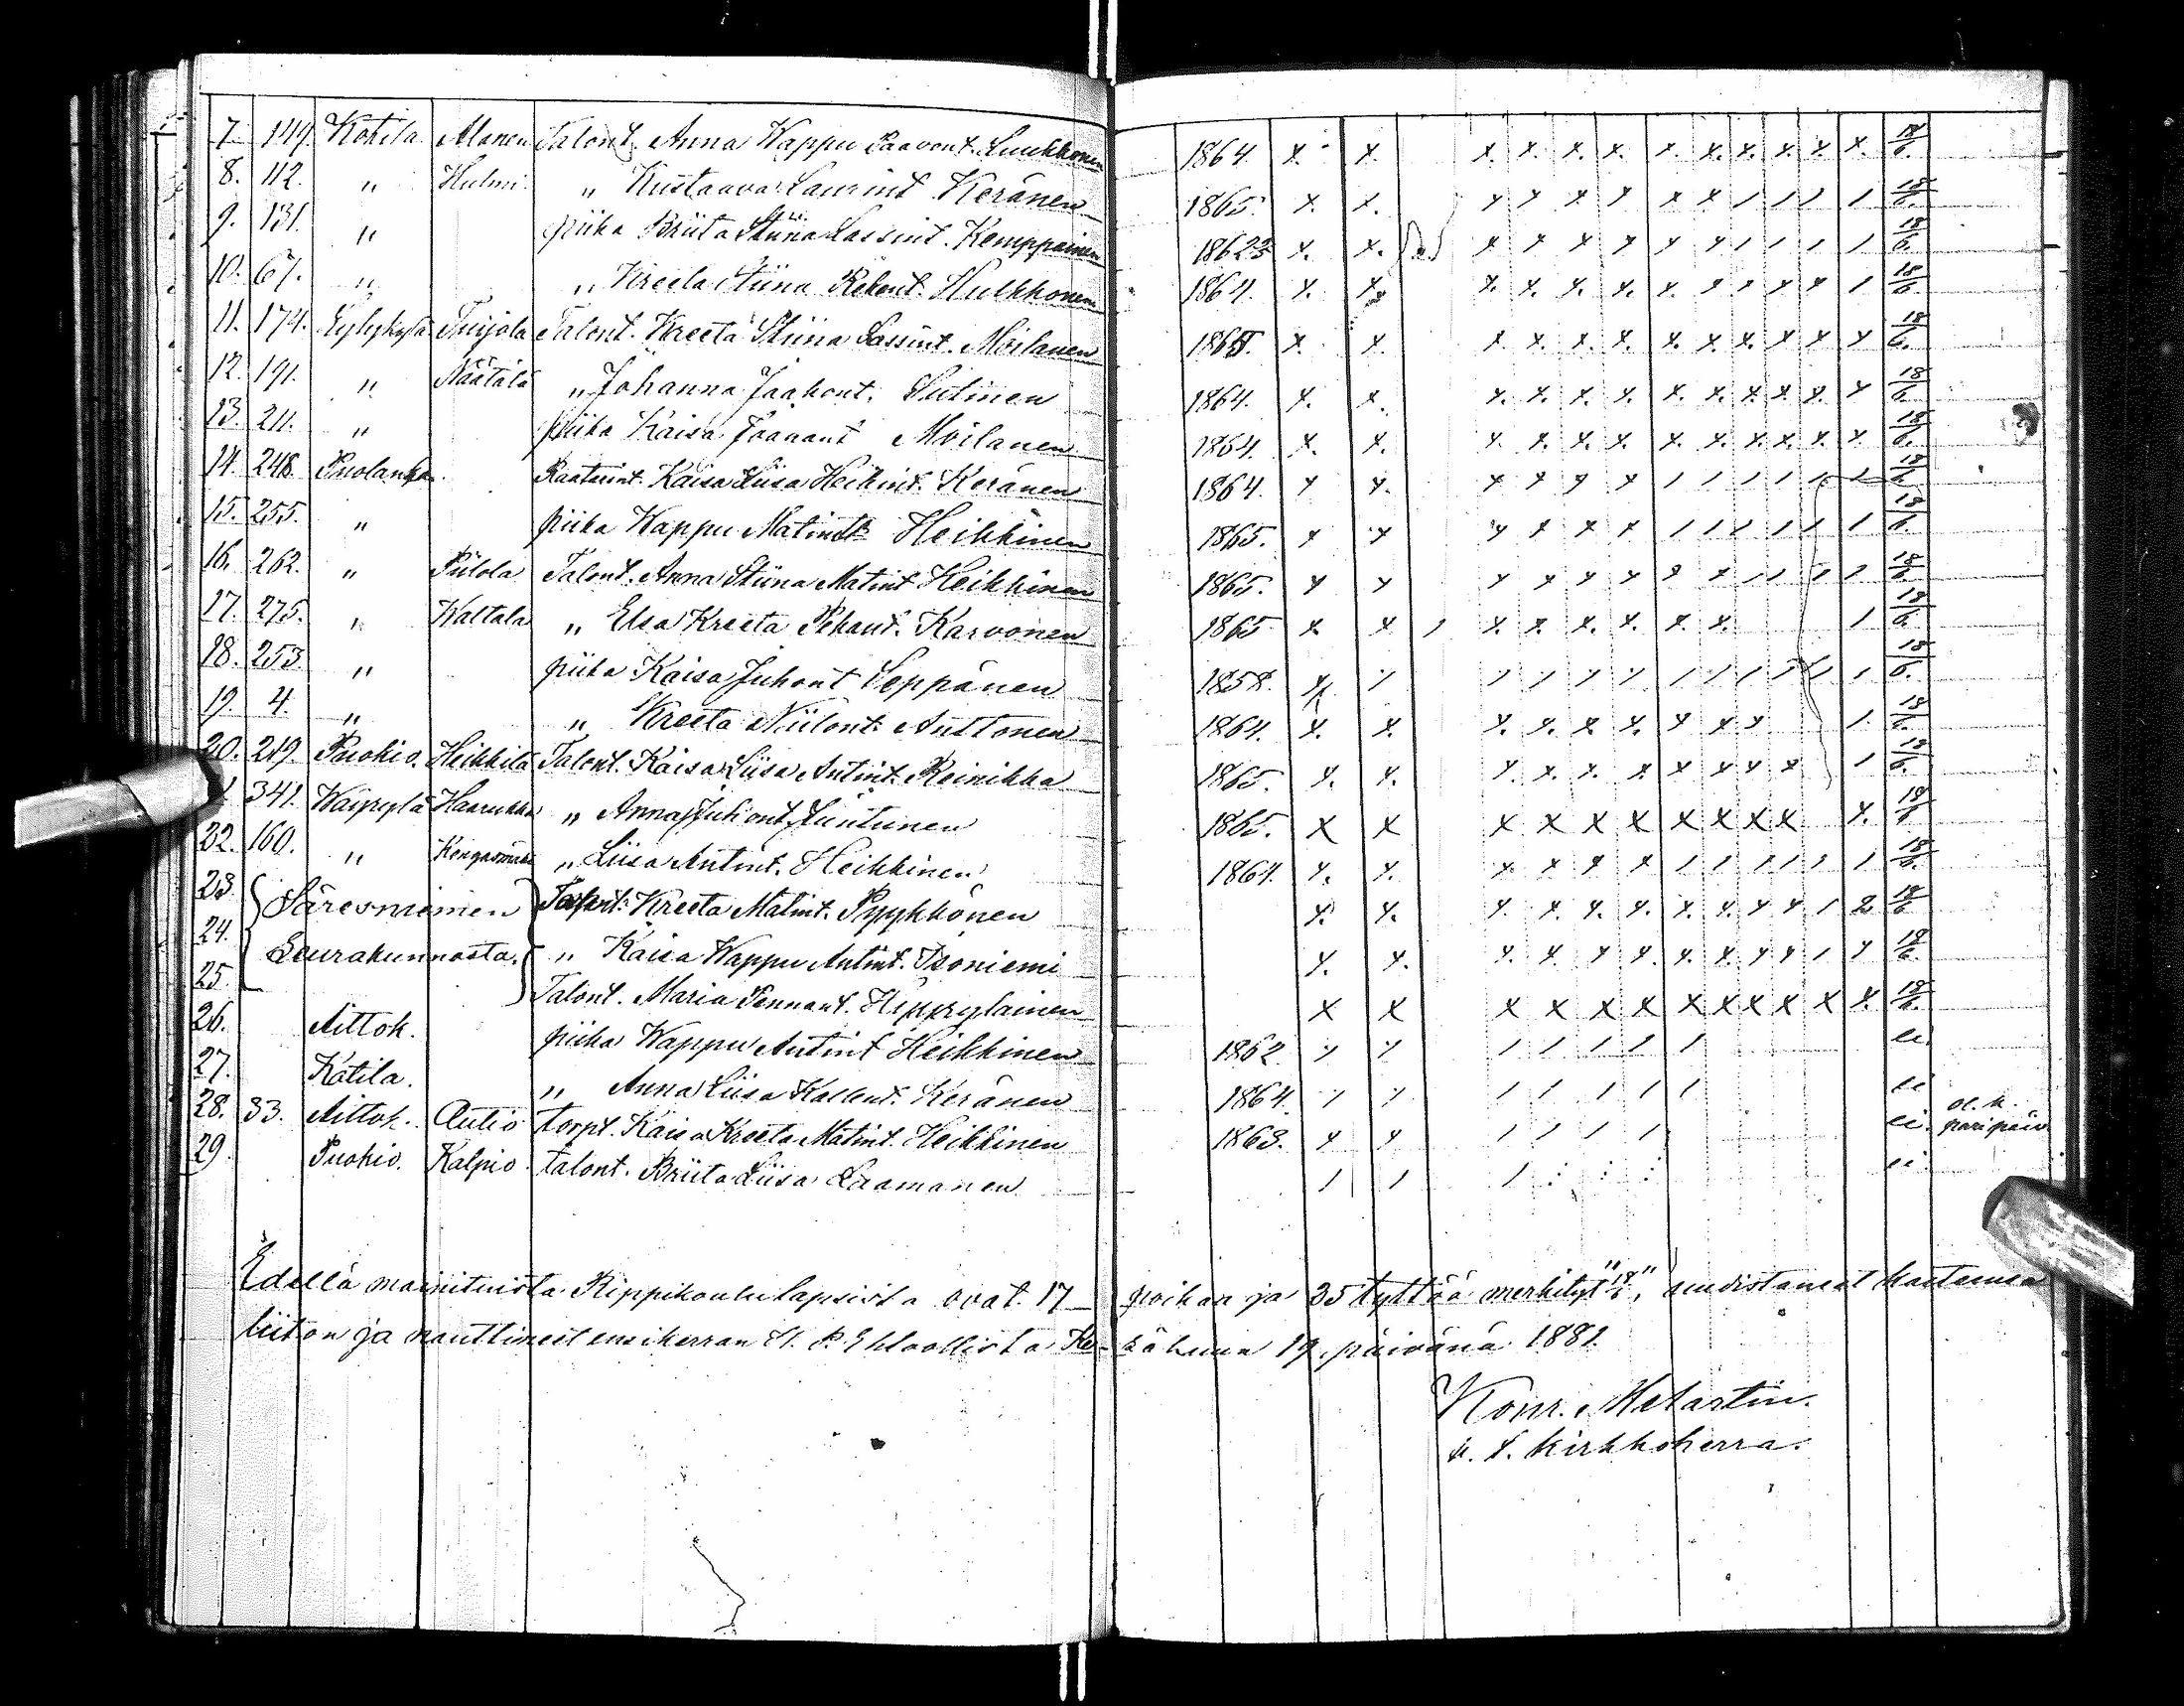 7. 149. Kotila Manen Talont. Anna Wappu Paavont. Luukkonen 1864. x. x. x. x. x. x. x. x. x. x. x. x. 18/6.
8. 112. " Hulmi. " Kustaava Laurint. Keränen 1865. x. x. x x x x x x / / / / 18/6.
9. 131. " piika Briita Stiina Lassint. Kemppainen x. x. x x x x x x / / / / 18/6.
10. 67. " " Kreeta Stiina Hulkkonen 1864. x. x. x. x. x. x. x. x x x x / 18/6.
11. 174. Tuijola Talont. Kreeta Stiina Lassint. Moilanen x. x. x x. x. x. x. x. x. x x x 18/6.
12. 191. " Näätälä " Johanna Jaakont. 1864. x. x. x. x. x. x. x. x. x. x. x. x 18/6.
13. 211. " piika Kaisa Moilanen 1864. x. x. x. x. x. x. x. x. x. x. x. x. 18/6.
14. 248. Puolanka. Kaisa Liisa Heikint. Keränen 1864. x x. x x x x / / / / / / 18/6.
15. 255. " piika Wappu Heikkinen 1865. x x x x x x / / / / / / 18/6.
16. 262. " Piilola Talont. Anna Stiina Matint Heikkinen 1865. x x x x x x x x / / / / 18/6.
17. 275. " Waltala " Elsa Kreeta Pekant. Karvonen 1865 x. x / x. x. x. x. x. x. / 18/6.
18. 253. " piika Kaisa Juhont Leppänen 1858. x / / / / / / / / / / / 18/6.
19. 4. " " Kreeta Niilont. Anttonen 1864. x. x. x. x. x. x. x x x / 18/6.
20. 219. Puokio. Heikkilä Talont. Kaisa Liisa Antint. Reinikka 1865. x. x. x. x. x. x x x x x / 18/6.
341. Wäyrylä " Anna Juhont. 1865. x x x x x x x x x x x. 18/6
22. 160. " " Liisa Antint. Heikkinen 1864. x. x. x x x x / / / / / / 18/6.
23. Säresniemen Kreeta Matint. Pyykkönen x. x. x. x. x. x. x. x. x x / 2 18/6
24. Seurakunnasta. " Kaisa Wappu Antint. Isoniemi x. x. x. x. x x. x. x. x x / x 18/6.
25. Talont. Maria Pennant. x x x x x x x x x x x x. 18/6.
26. Aittok. piika Wappu Antint Heikkinen 1862 / / / / / / / ei.
27. Kotila. " Anna Liisa Kallent. Keränen 1864. / / / / / / / ei
28. 33. Aittok. Autio torpt. Kaisa Kreeta Matint. Heikkinen 1863. x x / / / / ei. ol. k. paripäiv.
29. Puokio. Kalpio. talont. Briita Liisa Laamanen / / / ei
Edellä mainituista Rippikoulu lapsista ovat 17 poikaa ja 35 tyttöä merkityt "18/6", uudistaneet kasteensa
liiton ja nauttineet ensikerran H. P. Ehtoollista Ke-säkuun 19. päivänä 1881.
Konr. Metartin.
v. t. kirkkoherra.